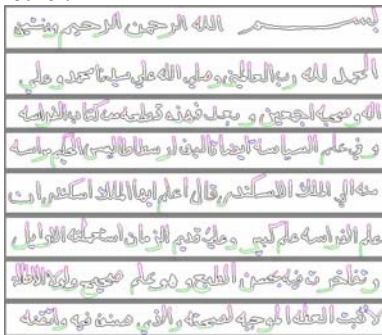 بسم الله الرحمن الرحيم وبه نستعين
الحمد لله رب العالمين وصلى الله على سيدنا محمد وعلى
اله وصحبه اجمعين وبعد فهذه قطعة من كتاب الفراسه
وفي علم السياسه ايضا تاليف ارسطاطاليس الحكيم مراسه
منه الى الملك الاسكندر قال اعلم ايها الملك اسكندر ان
علم الفراسه علم كبير وعلى قديم الزمان استعملته الاوايل
وتفاخرت فيه بحسن الطبع وهو علم صحيح
لاثبت العله الموجبه لصحته والذي